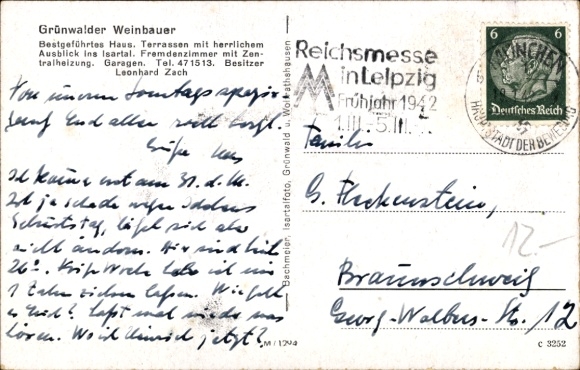 Grünwalder Weinbauer
Bestgeführtes Haus. Terrassen mit herrlichem
Ausblick ins Isartal. Fremdenzimmer mit Zen-
tralheizung. Garagen. Tel. 471513. Besitzer
Leonhard Zach
Von unserem Sonntagsspazier-
gang Euch allen recht herzl.
Grüße
Ich komme erst am 31. d. M.
Ist ja schade wegen
Geburtstag, läßt sich aber
nicht ändern. Hier sind heut
26°. Woche habe ich mir
1 Zahn ziehen lassen. Wie geht
es Euch? Laßt mal wieder was
hören. Wo ist Heinrich jetzt?
Bachmeier, Isartalfoto, Grünwald u. Wolfratshausen
M/1294
Reichsmesse
in Leipzig
Frühjahr 1942
1.III.-5.III.
6 6
Deutsches Reich
MÜNCHEN
HAUPTSTADT DER BEWEGUNG
Familie
G. Fleckenstein,
12.-
Braunschweig
Georg-Wolters-Str. 12
C 3252